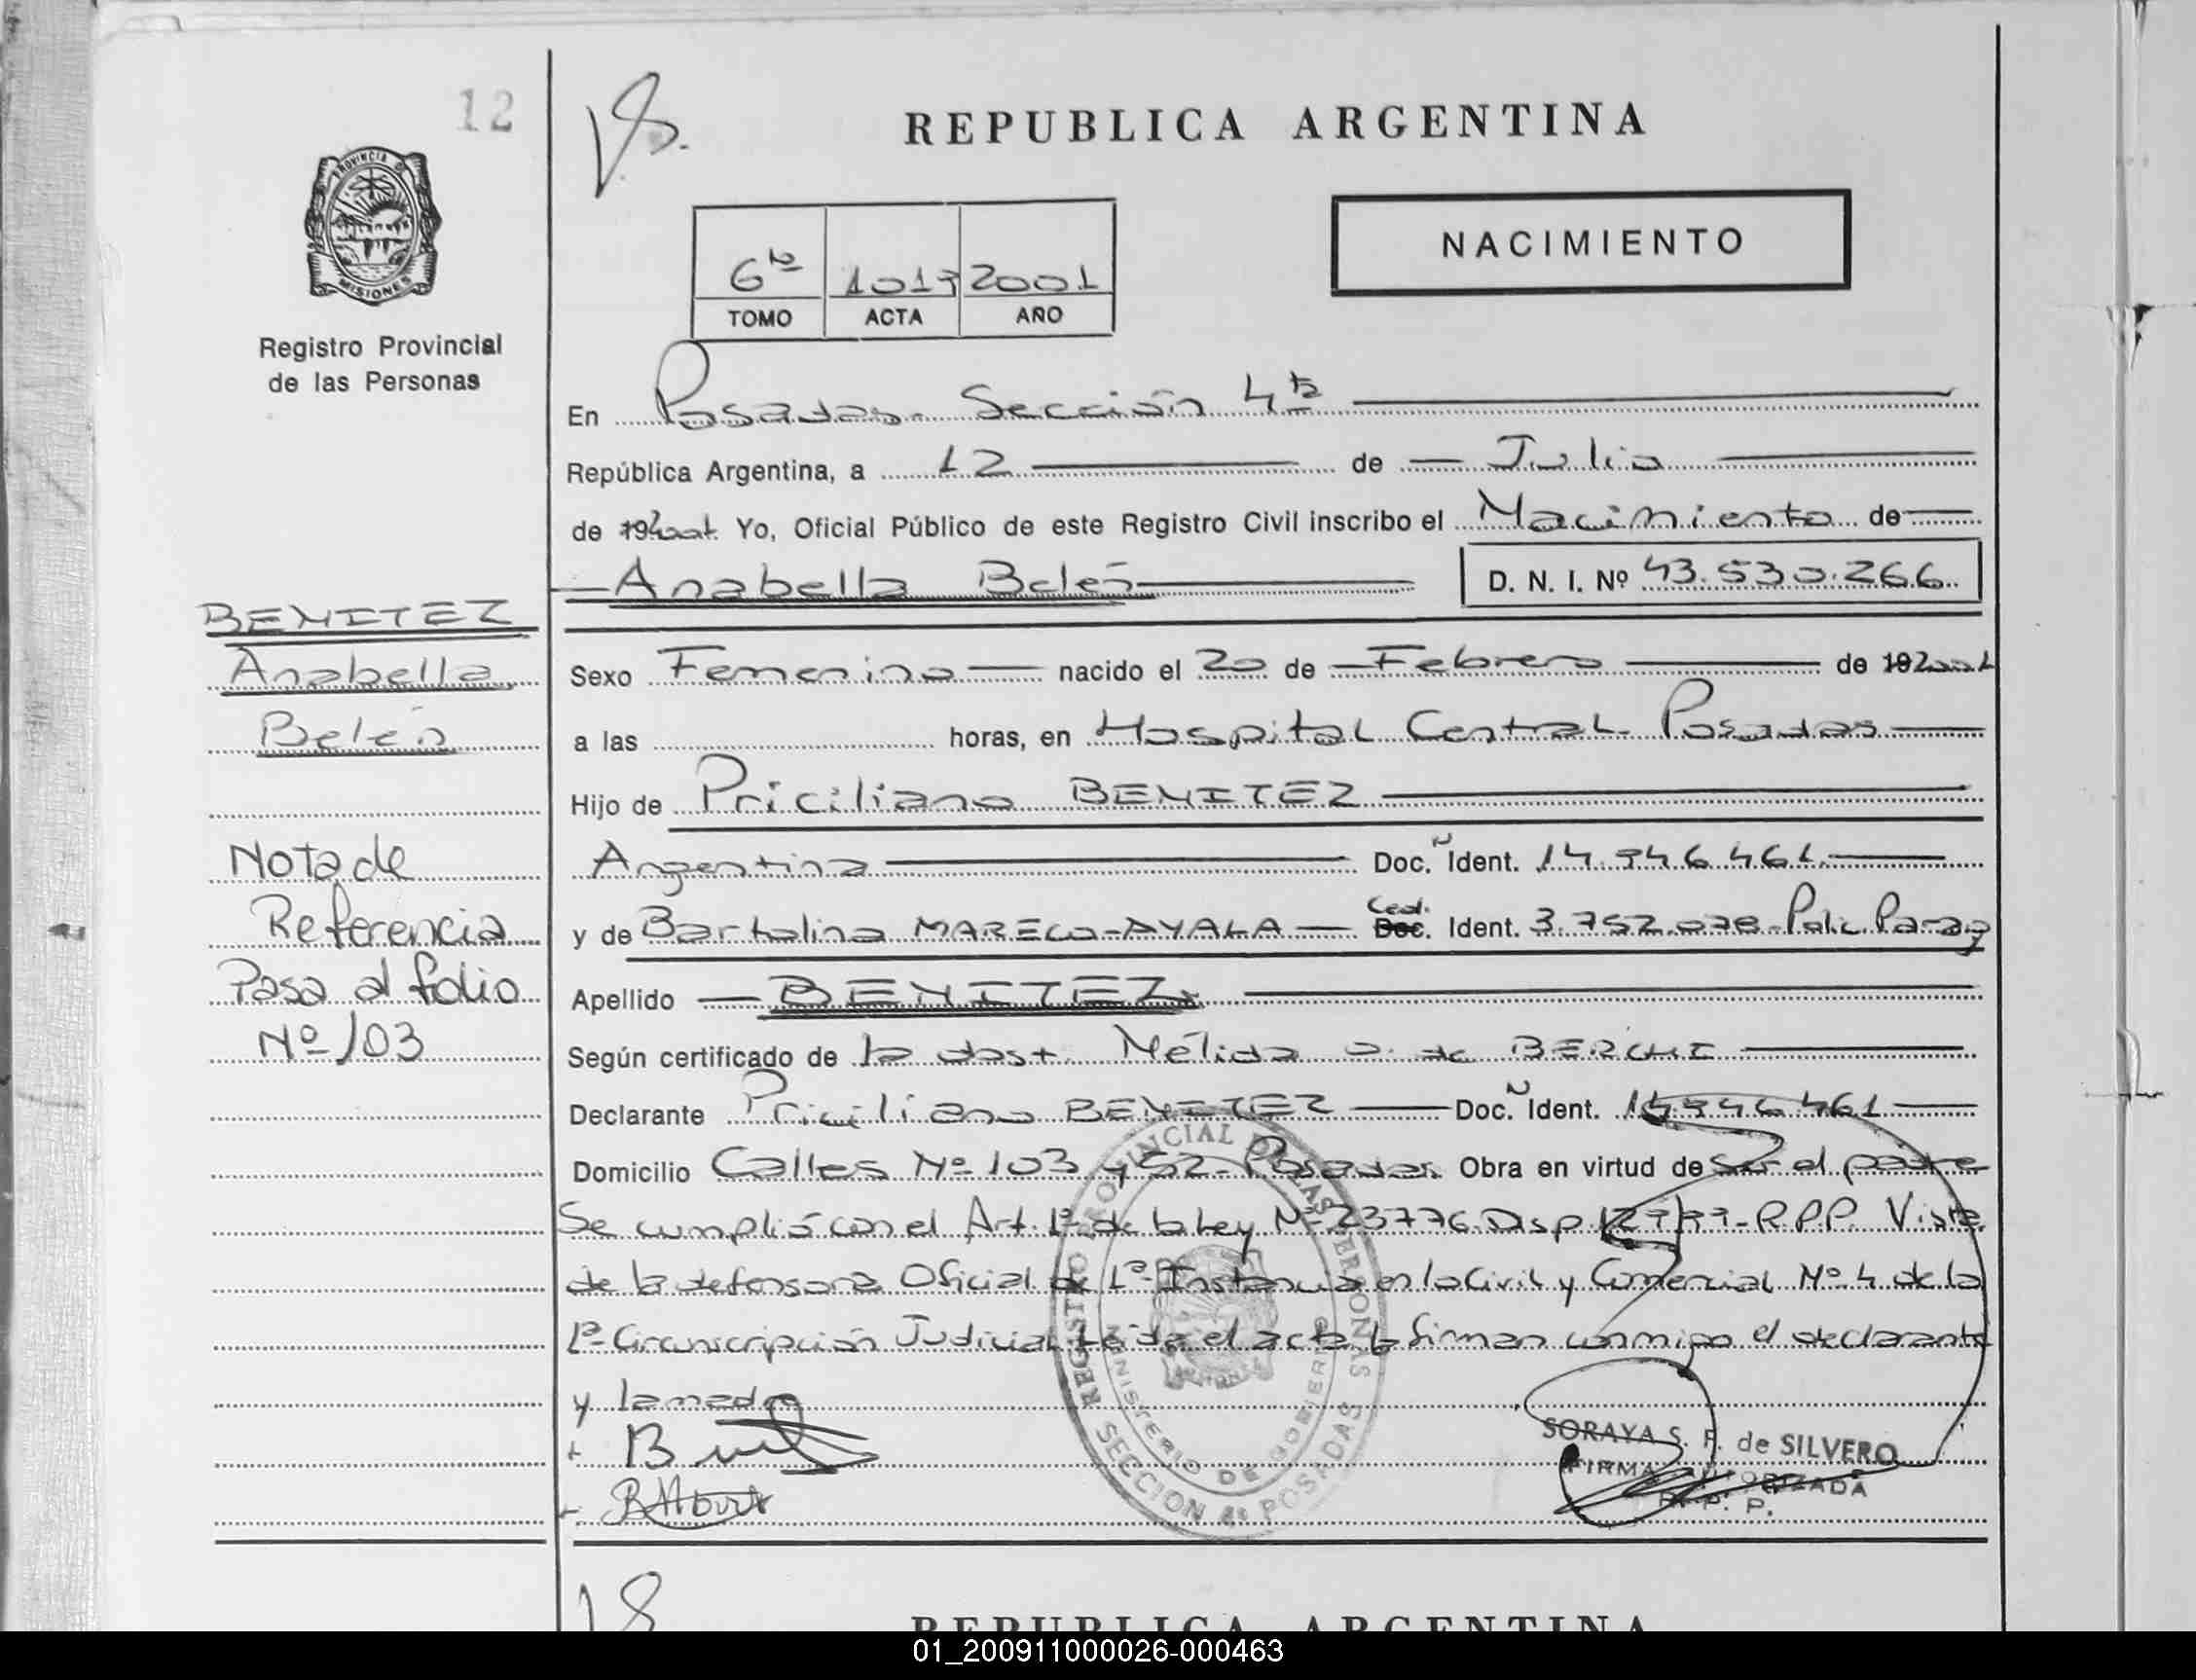 12
REPUBLICA ARGENTINA
PROVINCIA D
MISIONES
Registro Provincial
de las Personas
NACIMIENTO
6to 1013 2001
TOMO ACTA AÑO
En Posadas Sección 4ta
República Argentina, a 12 de Julio
de 192001 Yo, Oficial Público de este Registro Civil inscribo el Nacimiento de
Anabella Belén D. N. I. Nº 43.530.266
BENITEZ
Anabella
Belén
Sexo Femenino nacido el 20 de Febrero de 192001
a las horas, en Hospital Central Posadas
Hijo de Priciliano BENITEZ
Argentina Doc. Ñ Ident. 14.946.461
y de Bartolina MARECO-AYALA Ced. Doc. Ident. 3.752.078-Polic. Parag
Apellido BENITEZ
Nota de
Referencia
Pasa al folio
Nº 103
Según certificado de la obst. Nélida O. de BERCHI
Declarante Priciliano BENITEZ Doc. Ñ Ident. 14946461
Domicilio Calles Nº 103 y 52-Posadas. Obra en virtud de Ser el padre
Se cumplió con el Art. 1º de la Ley Nº 23776 Disp. R.P.P. Vista
de la defensora Oficial de 1ª Instancia en lo Civil y Comercial Nº 4 de la
1ª Circunscripción Judicial Leida el acta la firman conmigo el declarante
y la madre
REGISTRO PROVINCIAL DE LAS PERSONAS
MINISTERIO DE GOBIERNO
SECCION 4ª POSADAS
SORAYA S. F. de SILVERO
FIRMA AUTORIZADA
R. P. P.
18
REPUBLICA ARGENTINA
01_200911000026-000463